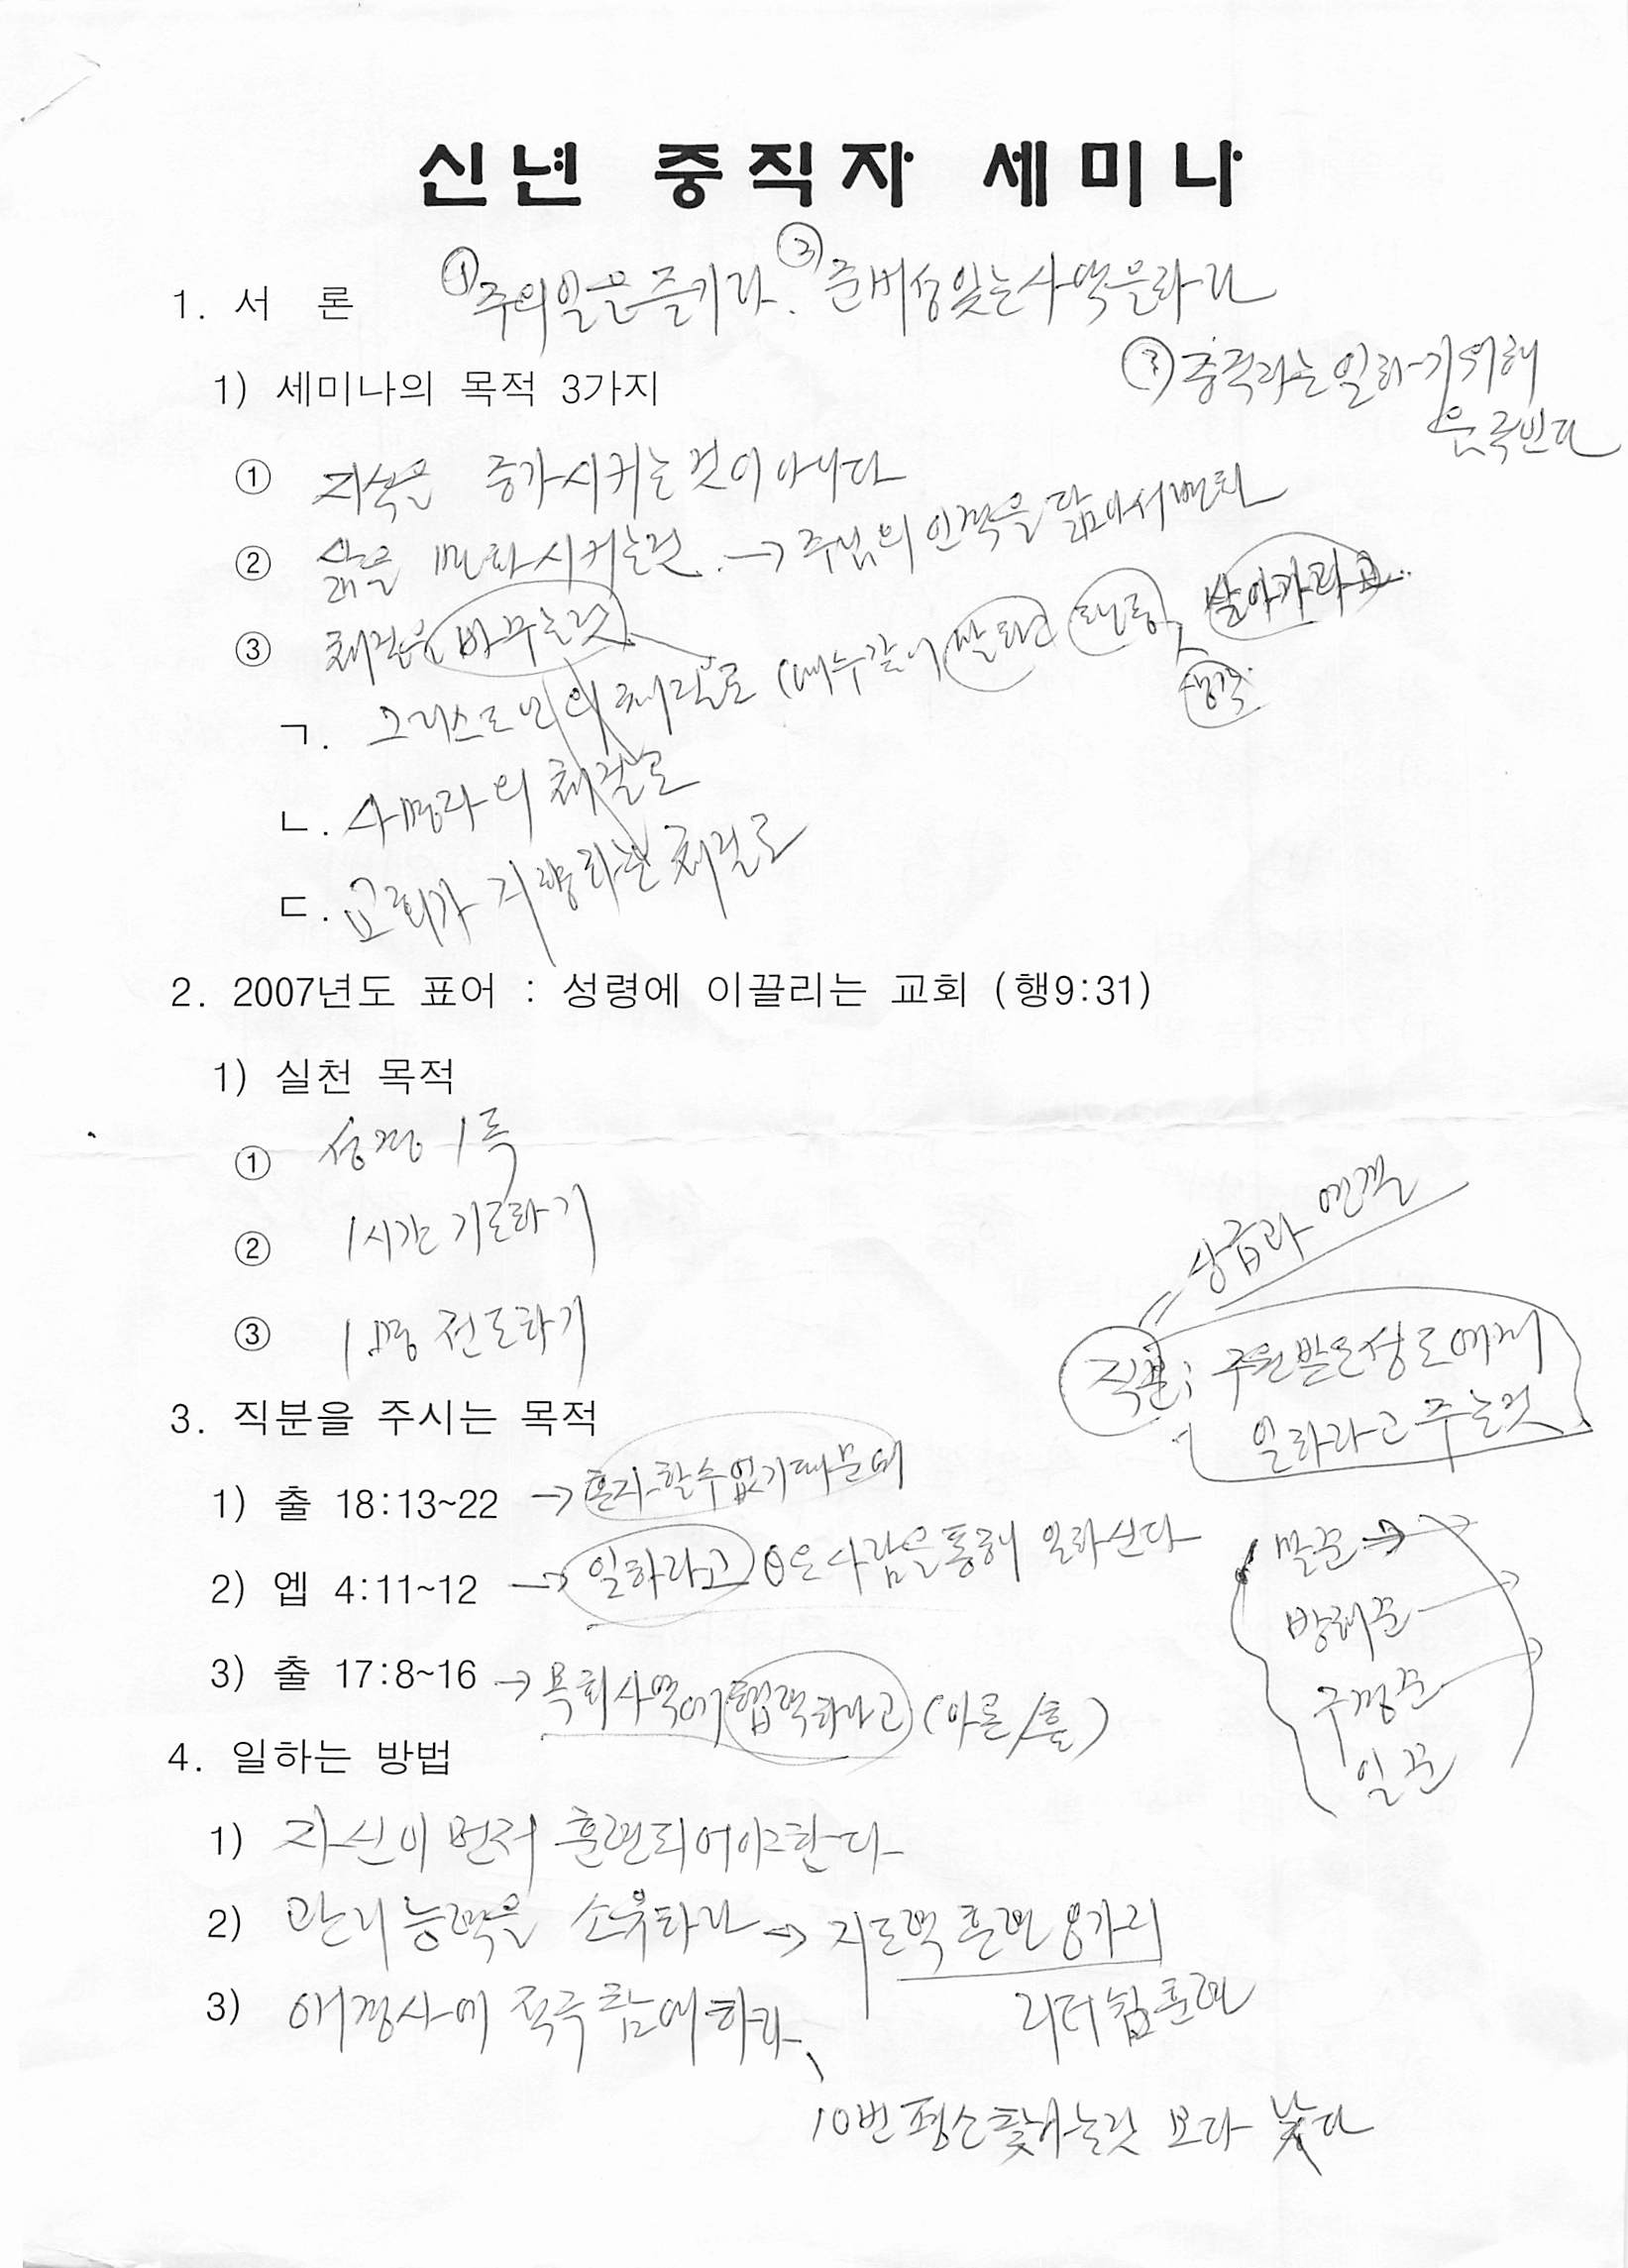 신년 중직자 세미나
① 주의일을즐기라. ② 준비성있는사역을하라
1. 서 론
③ 중직자는일하기위해
1) 세미나의 목적 3가지
① 지식을 증가시키는것이아니다
② 삶을 변화시키는것. → 주님의 인격을 닮아서변화
③ 체질을 바꾸는것
ㄱ. 그리스도인의 체질로 (예수같이 말하면 행동, 살아가라고
생각
ㄴ. 사명자의 체질로
ㄷ. 교회가 지향하는 체질로
2. 2007년도 표어 : 성령에 이끌리는 교회 (행9:31)
1) 실천 목적
① 성경 1독
② 1시간 기도하기
③ 1명 전도하기
상급과 연결
직분; 구원받은성도에게
일하라고 주는것
3. 직분을 주시는 목적
1) 출 18:13~22 → 혼자할수없기때문에
2) 엡 4:11~12 → 일하라고 은 사람을통해 일하신다
3) 출 17:8~16 → 목회사역에 협력하라고 (아론/훌)
말꾼 →
방해꾼
구경꾼
일꾼
4. 일하는 방법
1) 자신이 먼저 훈련되어야한다
2) 관리능력을 소유하라 → 지도력 훈련
리더쉽훈련
3) 애경사에 적극 참여하라
10번 평소 찾아 보다 낫다